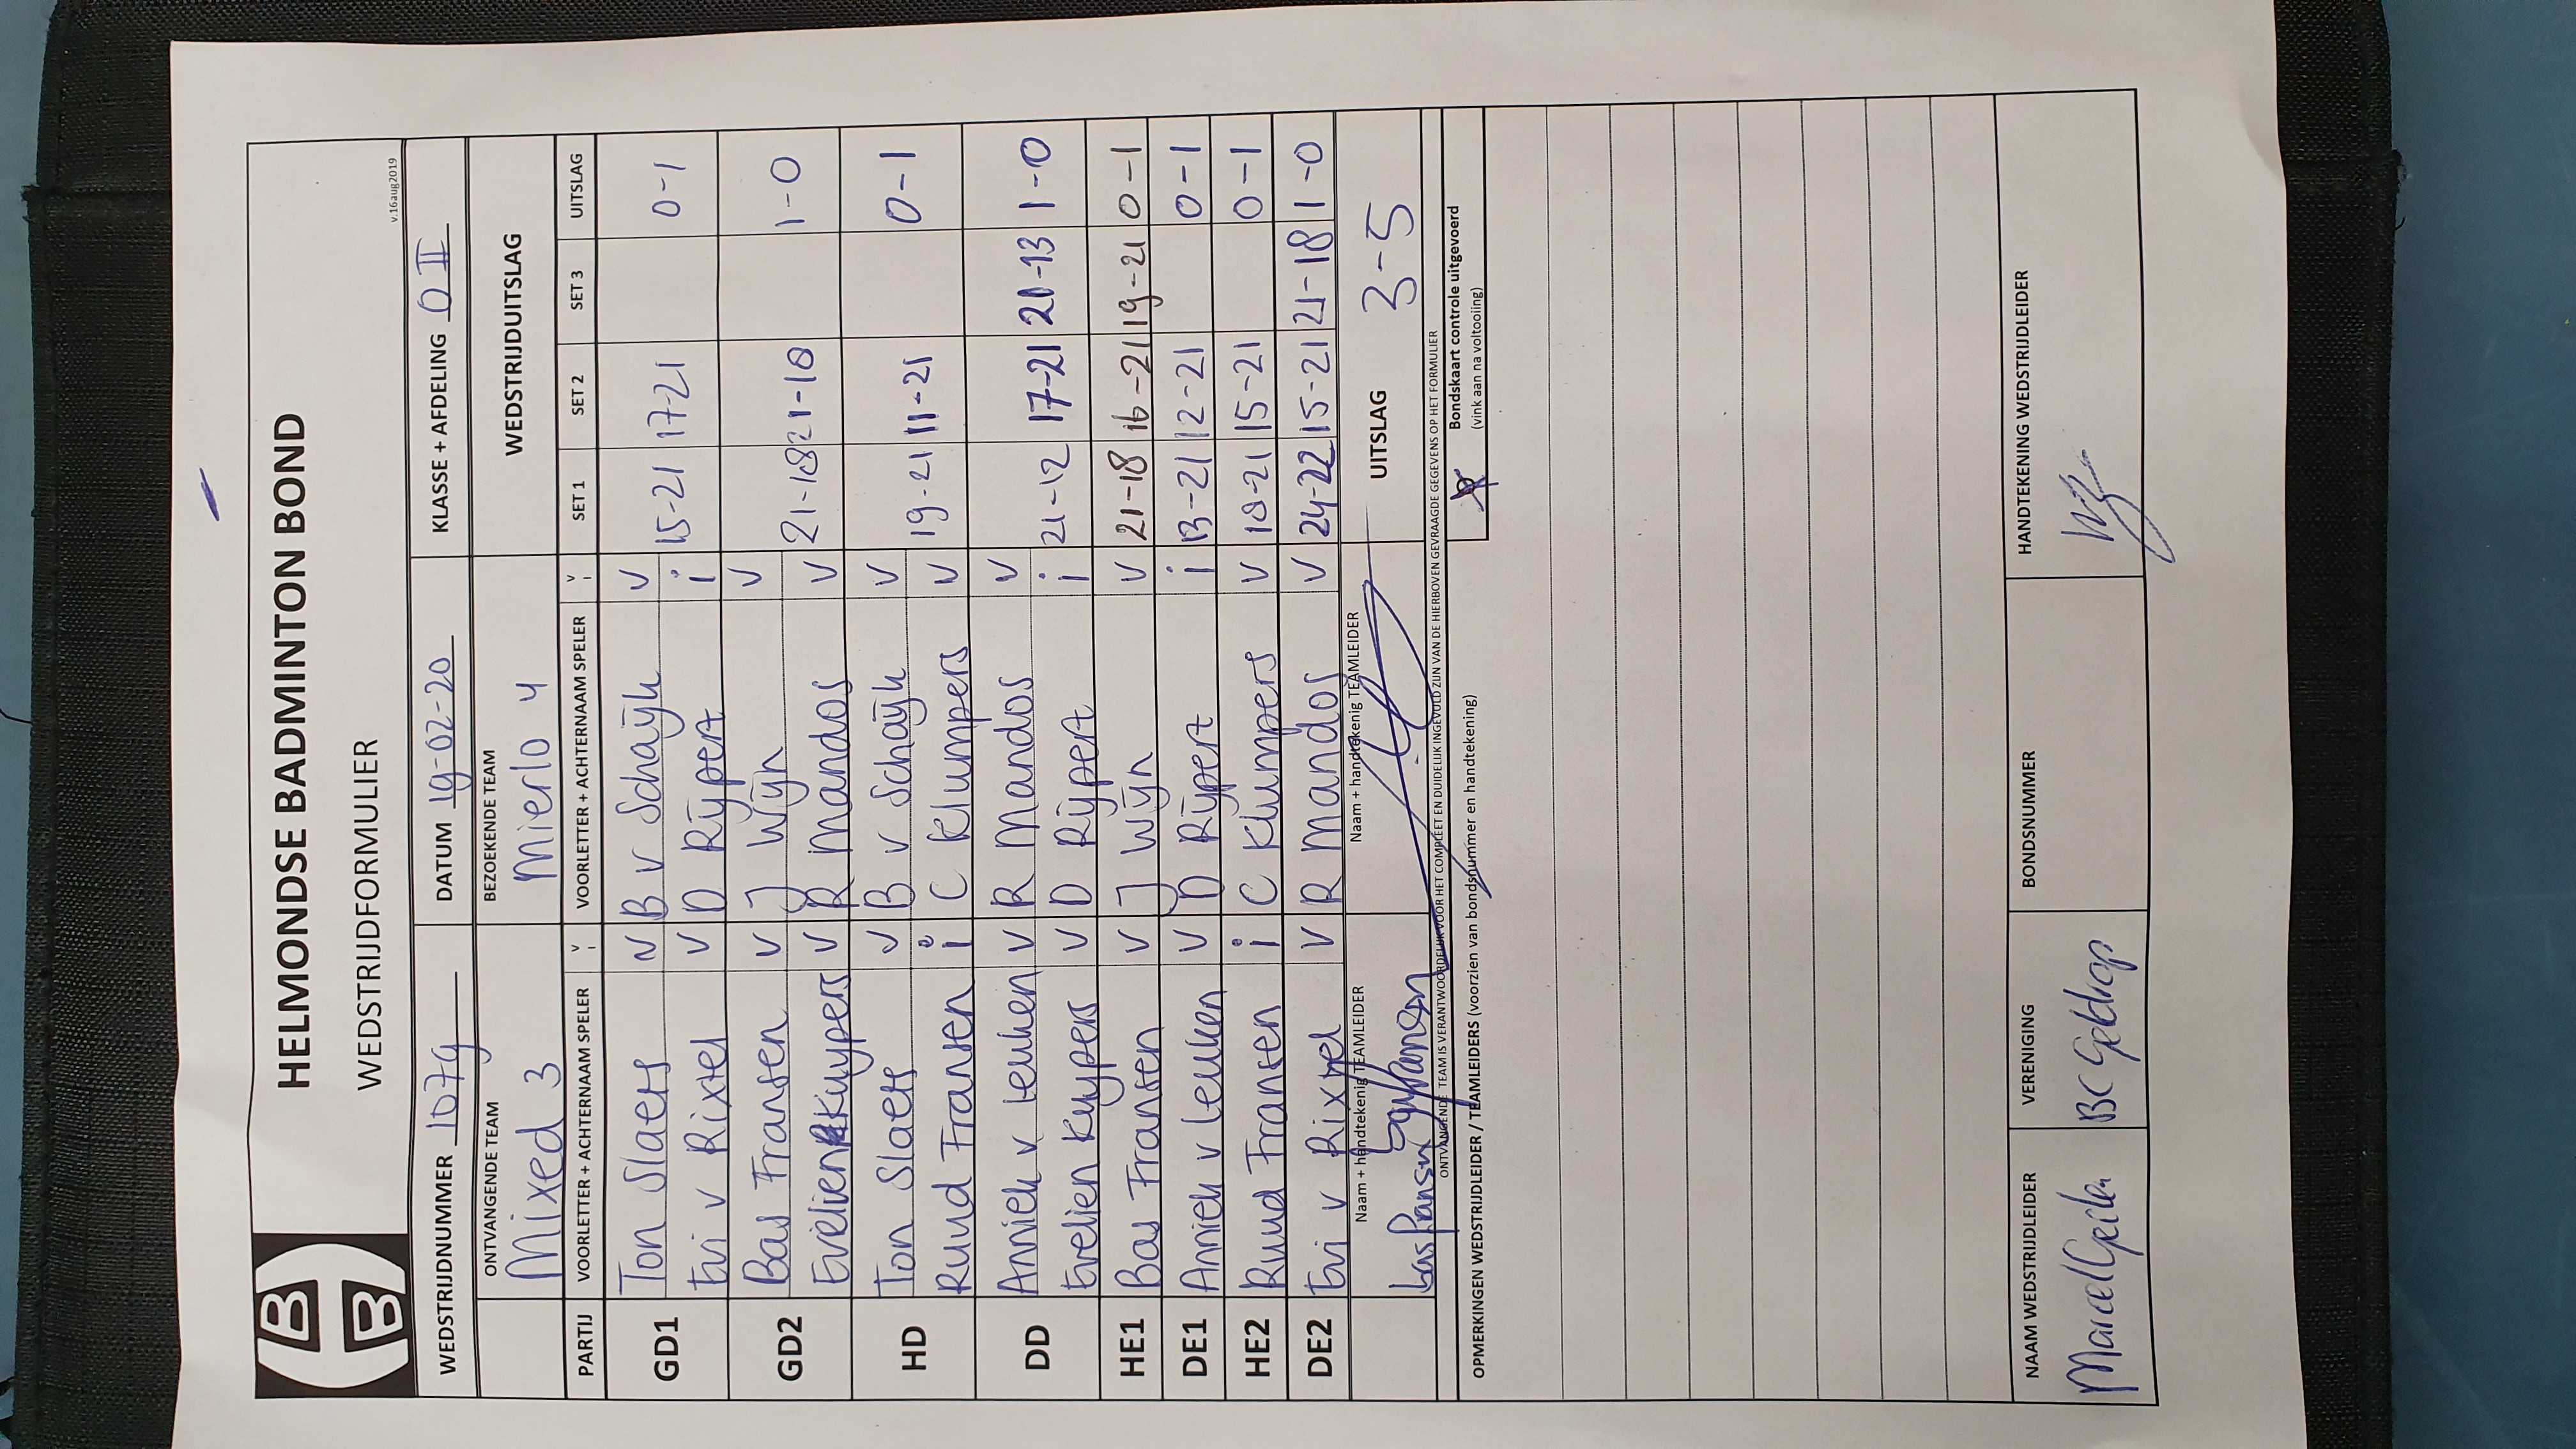 HELMONDSE BADMINTON BOND
WEDSTRIJDFORMULIER
v.16aug2019
WEDSTRIJDNUMMER 1079 DATUM 19-02-20 KLASSE + AFDELING O II
ONTVANGENDE TEAM BEZOEKENDE TEAM WEDSTRIJDUITSLAG
Mixed 3 Mierlo 4
PARTIJ VOORLETTER + ACHTERNAAM SPELER V i VOORLETTER + ACHTERNAAM SPELER V i SET 1 SET 2 SET 3 UITSLAG
GD1 Ton Slaets v B v Schaijk v
Evi v Rixtel v D Rijpert i 15-21 17-21 0-1
GD2 Bas Fransen v J Wijn v
Evelien Kuypers v R Mandos v 21-18 21-18 1-0
HD Ton Slaets v B v Schaijk v
Ruud Fransen i C Klumpers v 19-21 11-21 0-1
DD Anniek v Leuken v R Mandos v
Evelien Kuypers v D Rijpert i 21-12 17-21 21-13 1-0
HE1 Bas Fransen v J Wijn v 21-18 16-21 19-21 0-1
DE1 Anniek v Leuken v D Rijpert i 13-21 12-21 0-1
HE2 Ruud Fransen i C Klumpers v 18-21 15-21 0-1
DE2 Evi v Rixtel v R Mandos v 24-22 15-21 21-18 1-0
Naam + handtekenig TEAMLEIDER Naam + handtekenig TEAMLEIDER UITSLAG 3-5
Bas Fransen
ONTVANGENDE TEAM IS VERANTWOORDELIJK VOOR HET COMPLEET EN DUIDELIJK INGEVULD ZIJN VAN DE HIERBOVEN GEVRAAGDE GEGEVENS OP HET FORMULIER
OPMERKINGEN WEDSTRIJDLEIDER / TEAMLEIDERS (voorzien van bondsnummer en handtekening) Bondskaart controle uitgevoerd
(vink aan na voltooiing)
NAAM WEDSTRIJDLEIDER VERENIGING BONDSNUMMER HANDTEKENING WEDSTRIJDLEIDER
Marcel BC Geldrop